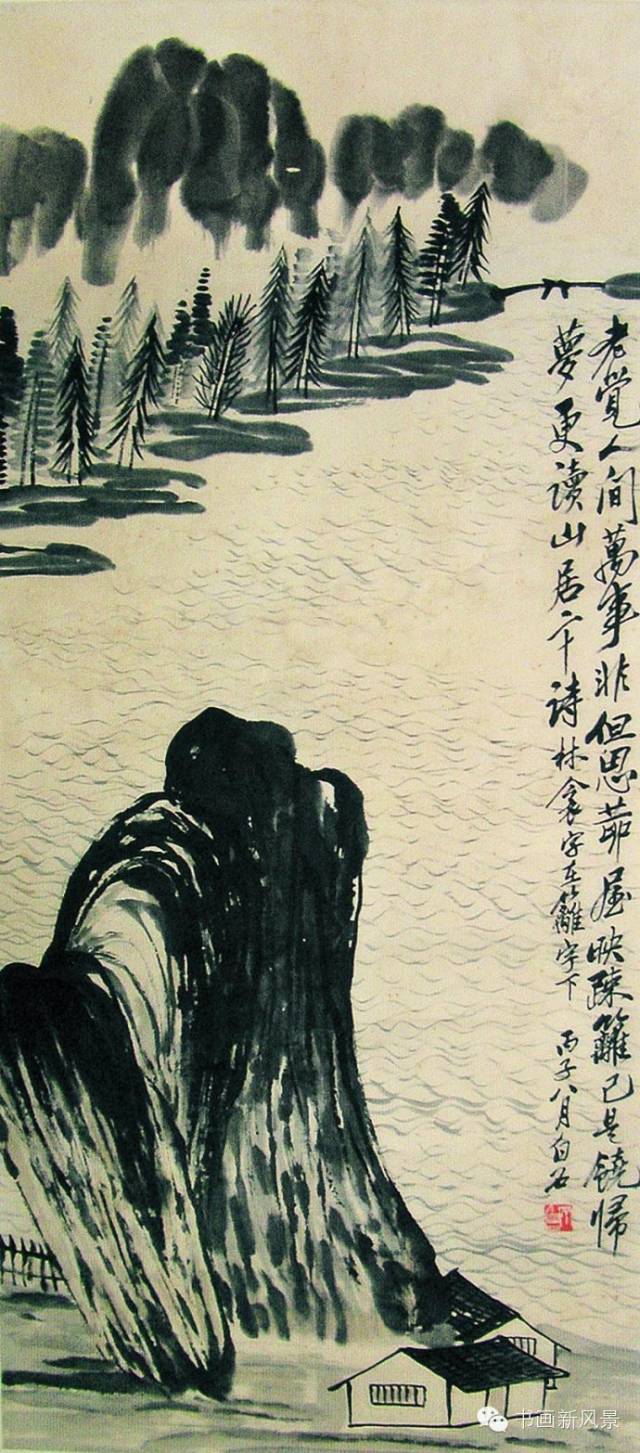 老覺人間萬事非但思茆屋映疎籬已是饒歸
夢更讀山居二十詩林衾字在籬字下 丙子八月白石
书画新风景